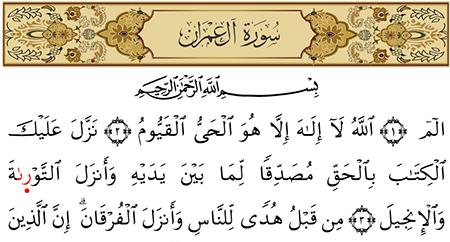 سُورَةُ آلِ عِمْرَانَ
بِسْمِ ٱللَّهِ ٱلرَّحْمَٰنِ ٱلرَّحِيمِ
الٓمٓ ۝١ ٱللَّهُ لَآ إِلَٰهَ إِلَّا هُوَ ٱلْحَىُّ ٱلْقَيُّومُ ۝٢ نَزَّلَ عَلَيْكَ
ٱلْكِتَٰبَ بِٱلْحَقِّ مُصَدِّقًا لِّمَا بَيْنَ يَدَيْهِ وَأَنزَلَ ٱلتَّوْرَىٰةَ
وَٱلْإِنجِيلَ ۝٣ مِن قَبْلُ هُدًى لِّلنَّاسِ وَأَنزَلَ ٱلْفُرْقَانَ ۗ إِنَّ ٱلَّذِينَ